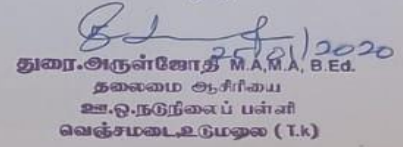 25/01/2020
துரை.அருள்ஜோதி M.A,M.A, B.Ed.
தலைமை ஆசிரியை
ஊ.ஒ.நடுநிலைப் பள்ளி
வெஞ்சமடை,உடுமலை ( T.k)